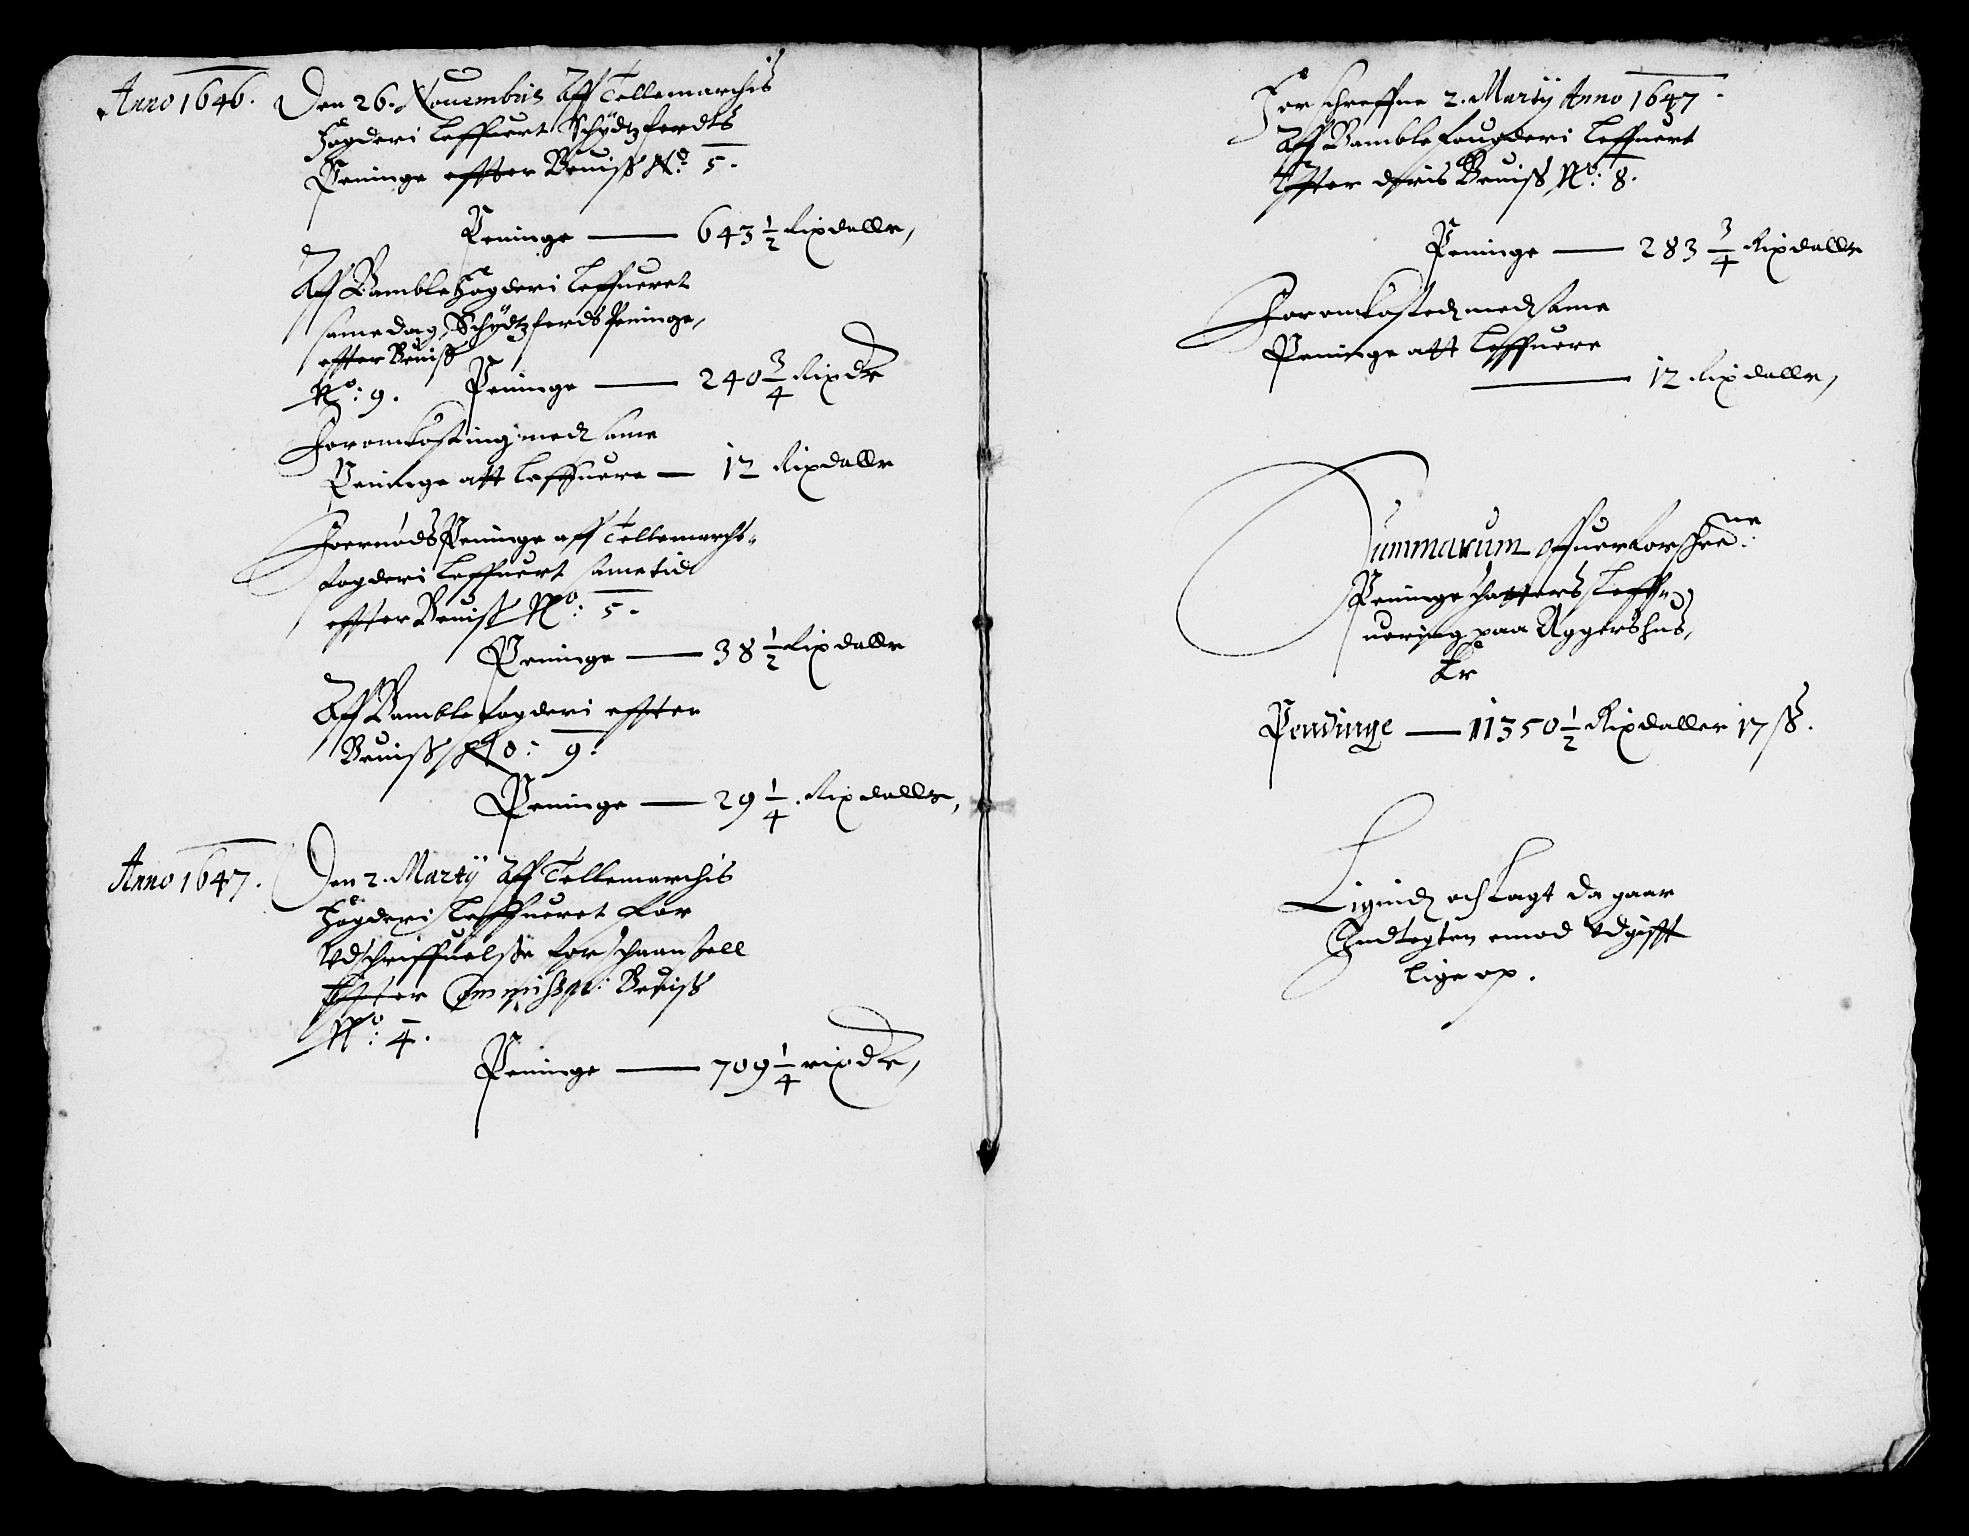 Anno 1646. Den 26. Nouembris Aff Tellemarchis
Fogderi Leffuert Schydtzferdts
Peninge effter Beuiss No 5.
Peninge — 643 1/2 Rixdallr,
Aff Bamble Fogderi Leffueret
same dag, Schydtzferds Peninge,
effter Beuiss
No: 9. Peninge — 240 3/4 Rixdr
For omkosting med same
Peninge att Leffuere — 12 Rixdallr
Peninge aff Tellemarchs
fogderi Leffuert same tid
effter Beuiss No: 5.
Peninge — 38 1/2 Rixdallr
Aff Bamble fogderi effter
Beuiss No: 9.
Peninge — 29 1/4. Rixdallr,
Anno 1647. Den 2. Martij Aff Tellemarchis
Fogderi Leffueret for
Vdschriffuelsse
Effter Beuiss
No: 4.
Peninge — 709 1/4 rixdr,
For schreffne 2. Martij Anno 1647.
Aff Bamble fougderi Leffuert
Effter deris Beuiss No: 8.
Peninge — 283 3/4 Rixdallr
For omkosted med same
Peninge att Leffuere
— 12 Rixdallr,
Summarum offuer forschrene:
Peninge schatters Leff-
uering paa Aggershus,
Er
Pendinge — 11350 1/2 Rixdaller 17 ss.
Lignid och Lagt da gaar
Indtegten emod Vdgifft
lige op.